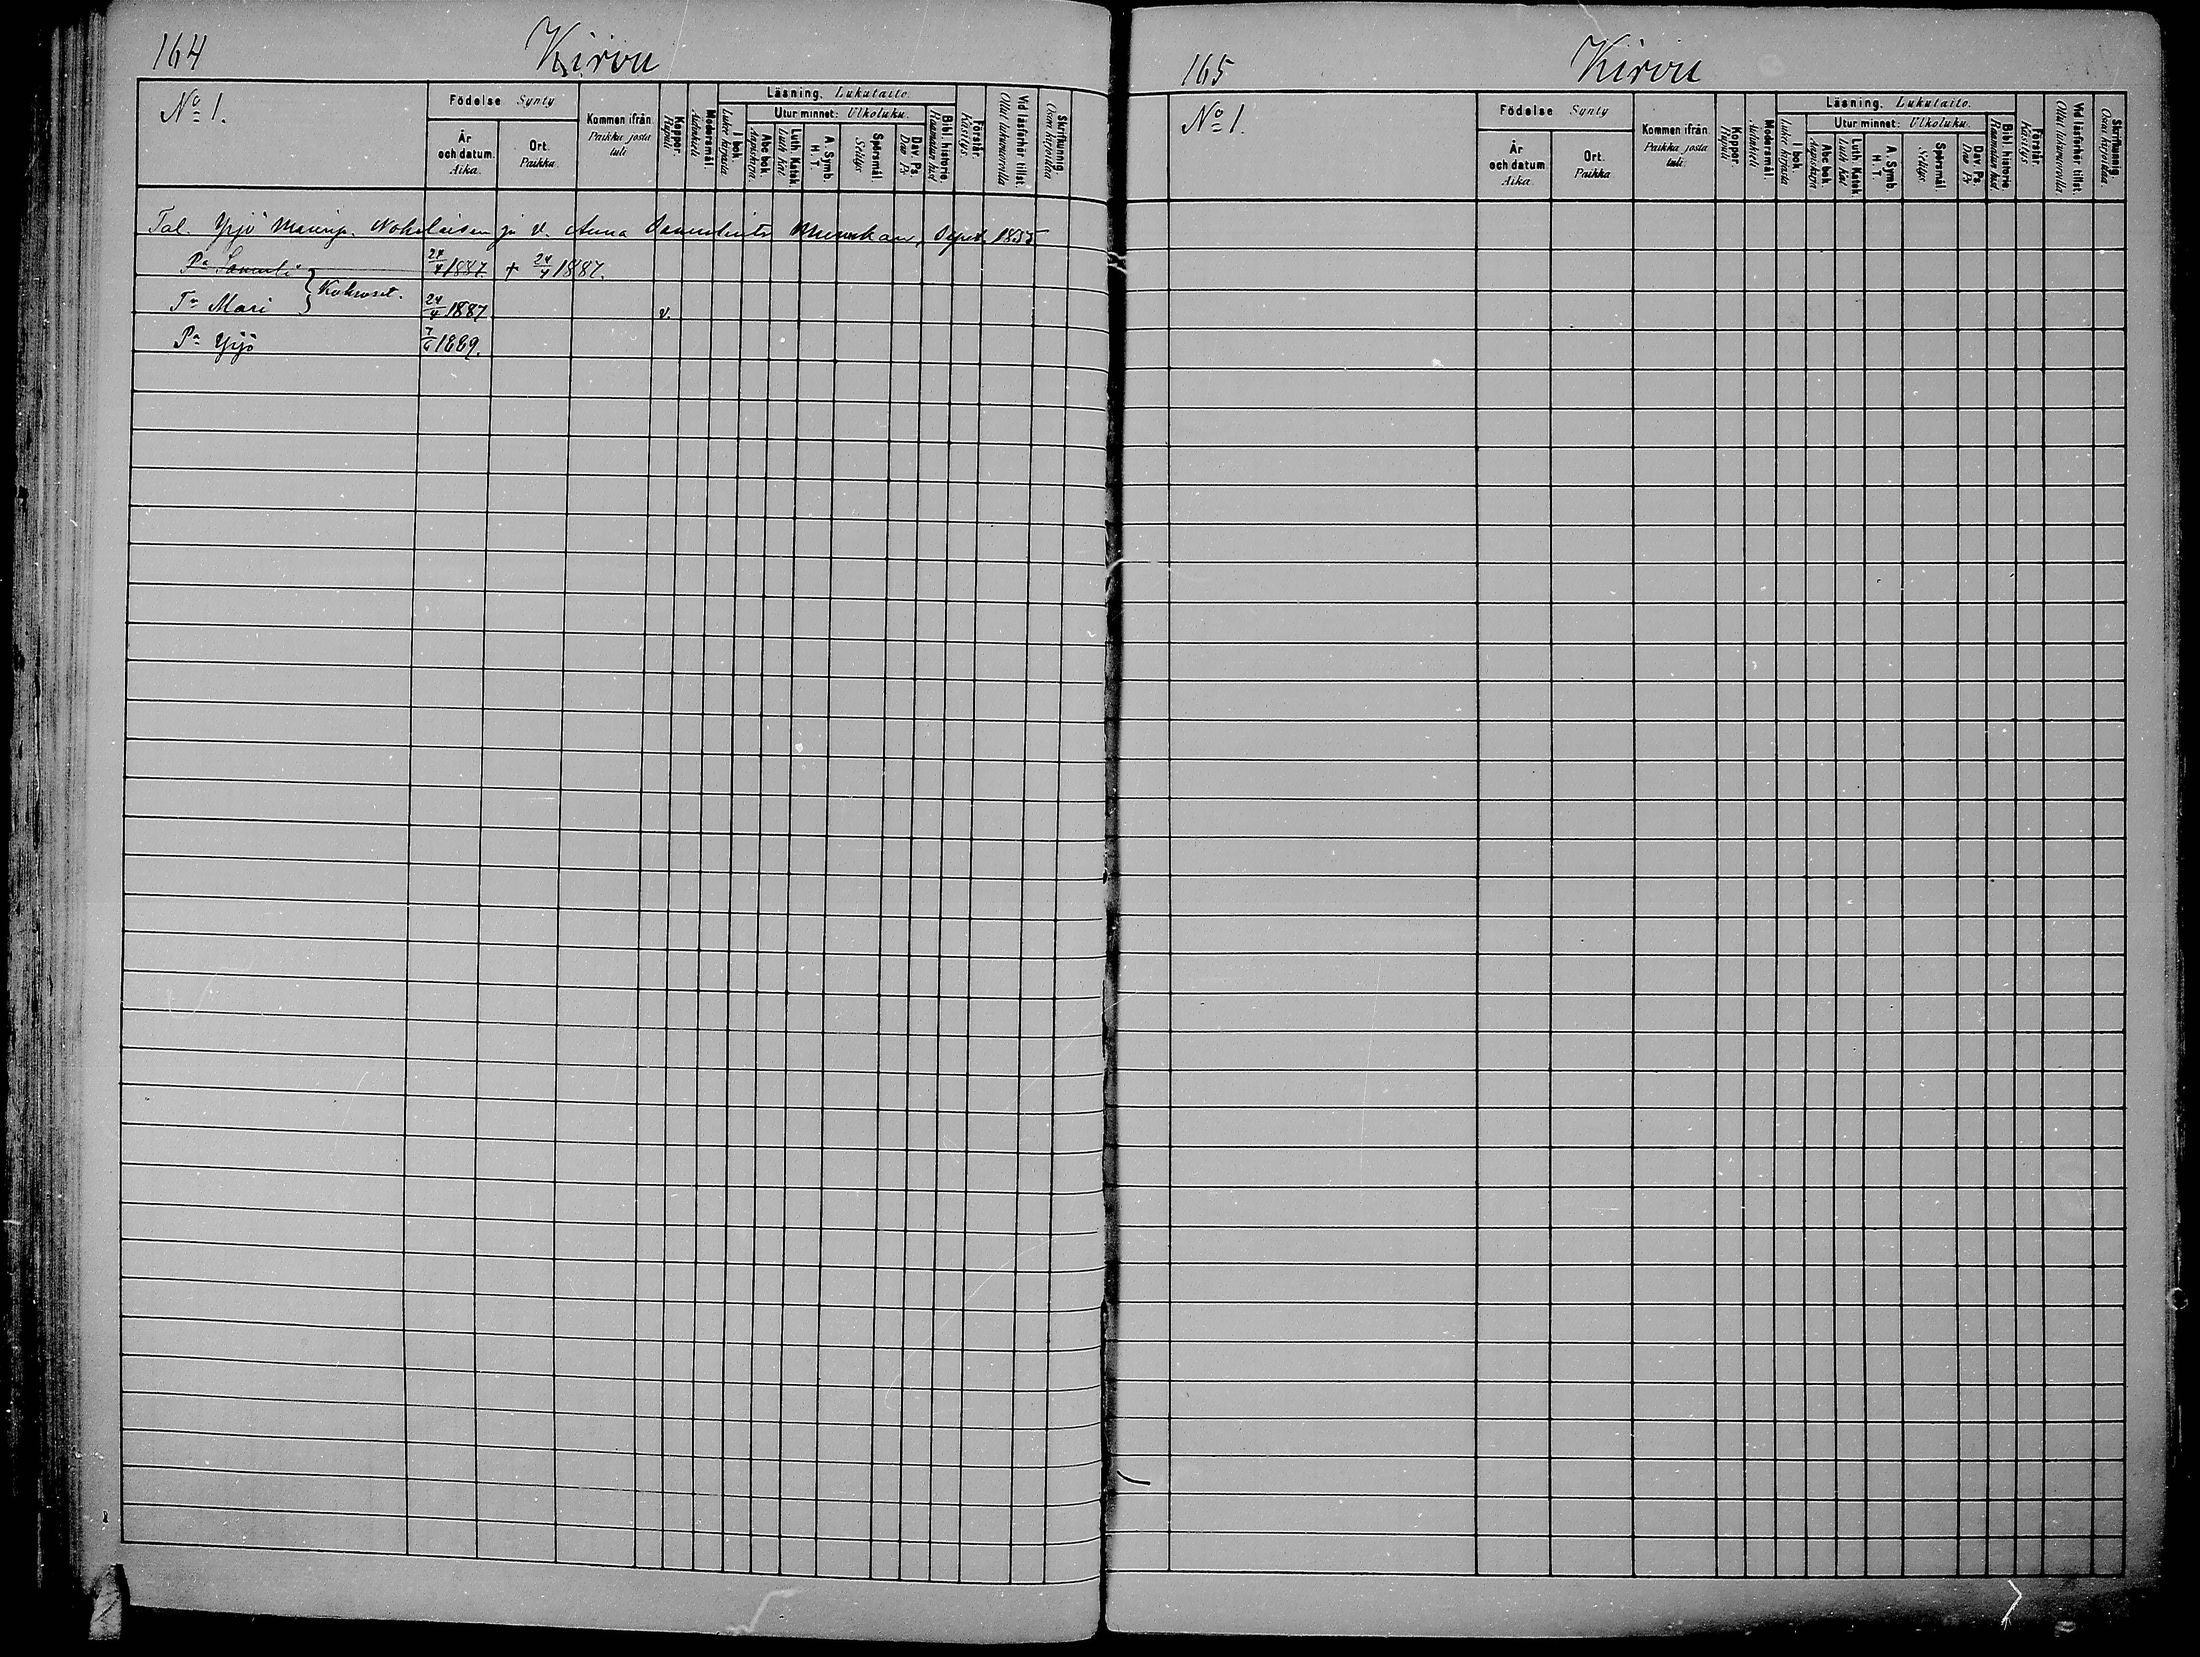 164 Kirvu
No 1.
Födelse Synty
År och datum. Aika.
Ort. Paikka.
Kommen ifrån Paikka josta tuli
Koppor. Rupuli
Modersmål. Äidinkieli
Läsning. Lukutaito.
I bok. Lukee kirjasta
Utur minnet: Ulkoluku.
Abc bok. Aapiskirja.
Luth. Katek. Luth Kat.
A. Symb. H. T.
Spörsmål. Selitys
Dav. Ps. Dav Ps
Bibl. historie. Raamatun hist
Förstår. Käsitys
Vid läsförhör tillst. Ollut lukuvuorolla
Skrifkunnig. Osaa kirjoittaa
Tal. Yrjö Nokelaisen ja v. Anna
Pa Samuli 24/4 1887. + 24/4 1887.
Tr Mari Kakvoset. 24/4 1887 v.
Pa Yrjö 7/6 1889.
165 Kirvu
No 1.
Födelse Synty
År och datum. Aika.
Ort. Paikka
Kommen ifrån Paikka josta tuli.
Koppor. Rupuli
Modersmål. Äidinkieli
Läsning. Lukutaito.
I bok. Lukee kirjasta
Utur minnet: Ulkoluku.
Abc bok Aapiskirja
Luth. Katek. Luth Kat
A. Symb. H. T.
Spörsmål Selitys
Dav. Ps. Dav Ps
Bibl. historie. Raamatun hist
Förstår. Käsitys
Vid läsförhör tillst. Ollut lukuvuorolla
Skrifkunnig. Osaa kirjoittaa